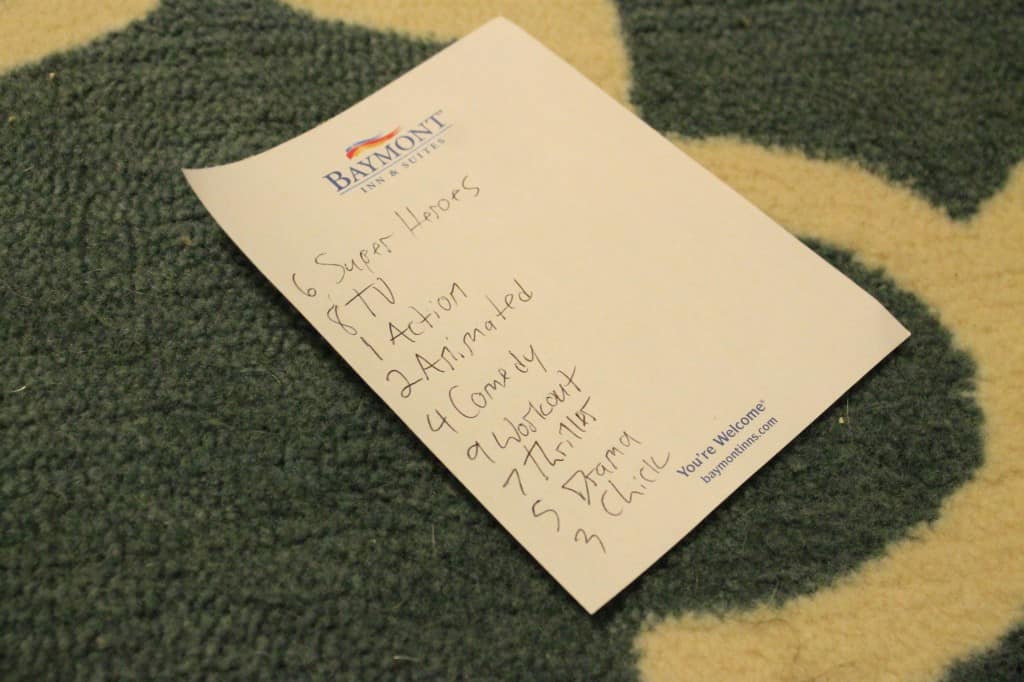 BAYMONT
INN & SUITES
6 Super Heroes
8 TV
1 Action
2 Animated
4 Comedy
9 Workout
7 Thriller
5 Drama
3 Chick
You're Welcome®
baymontinns.com